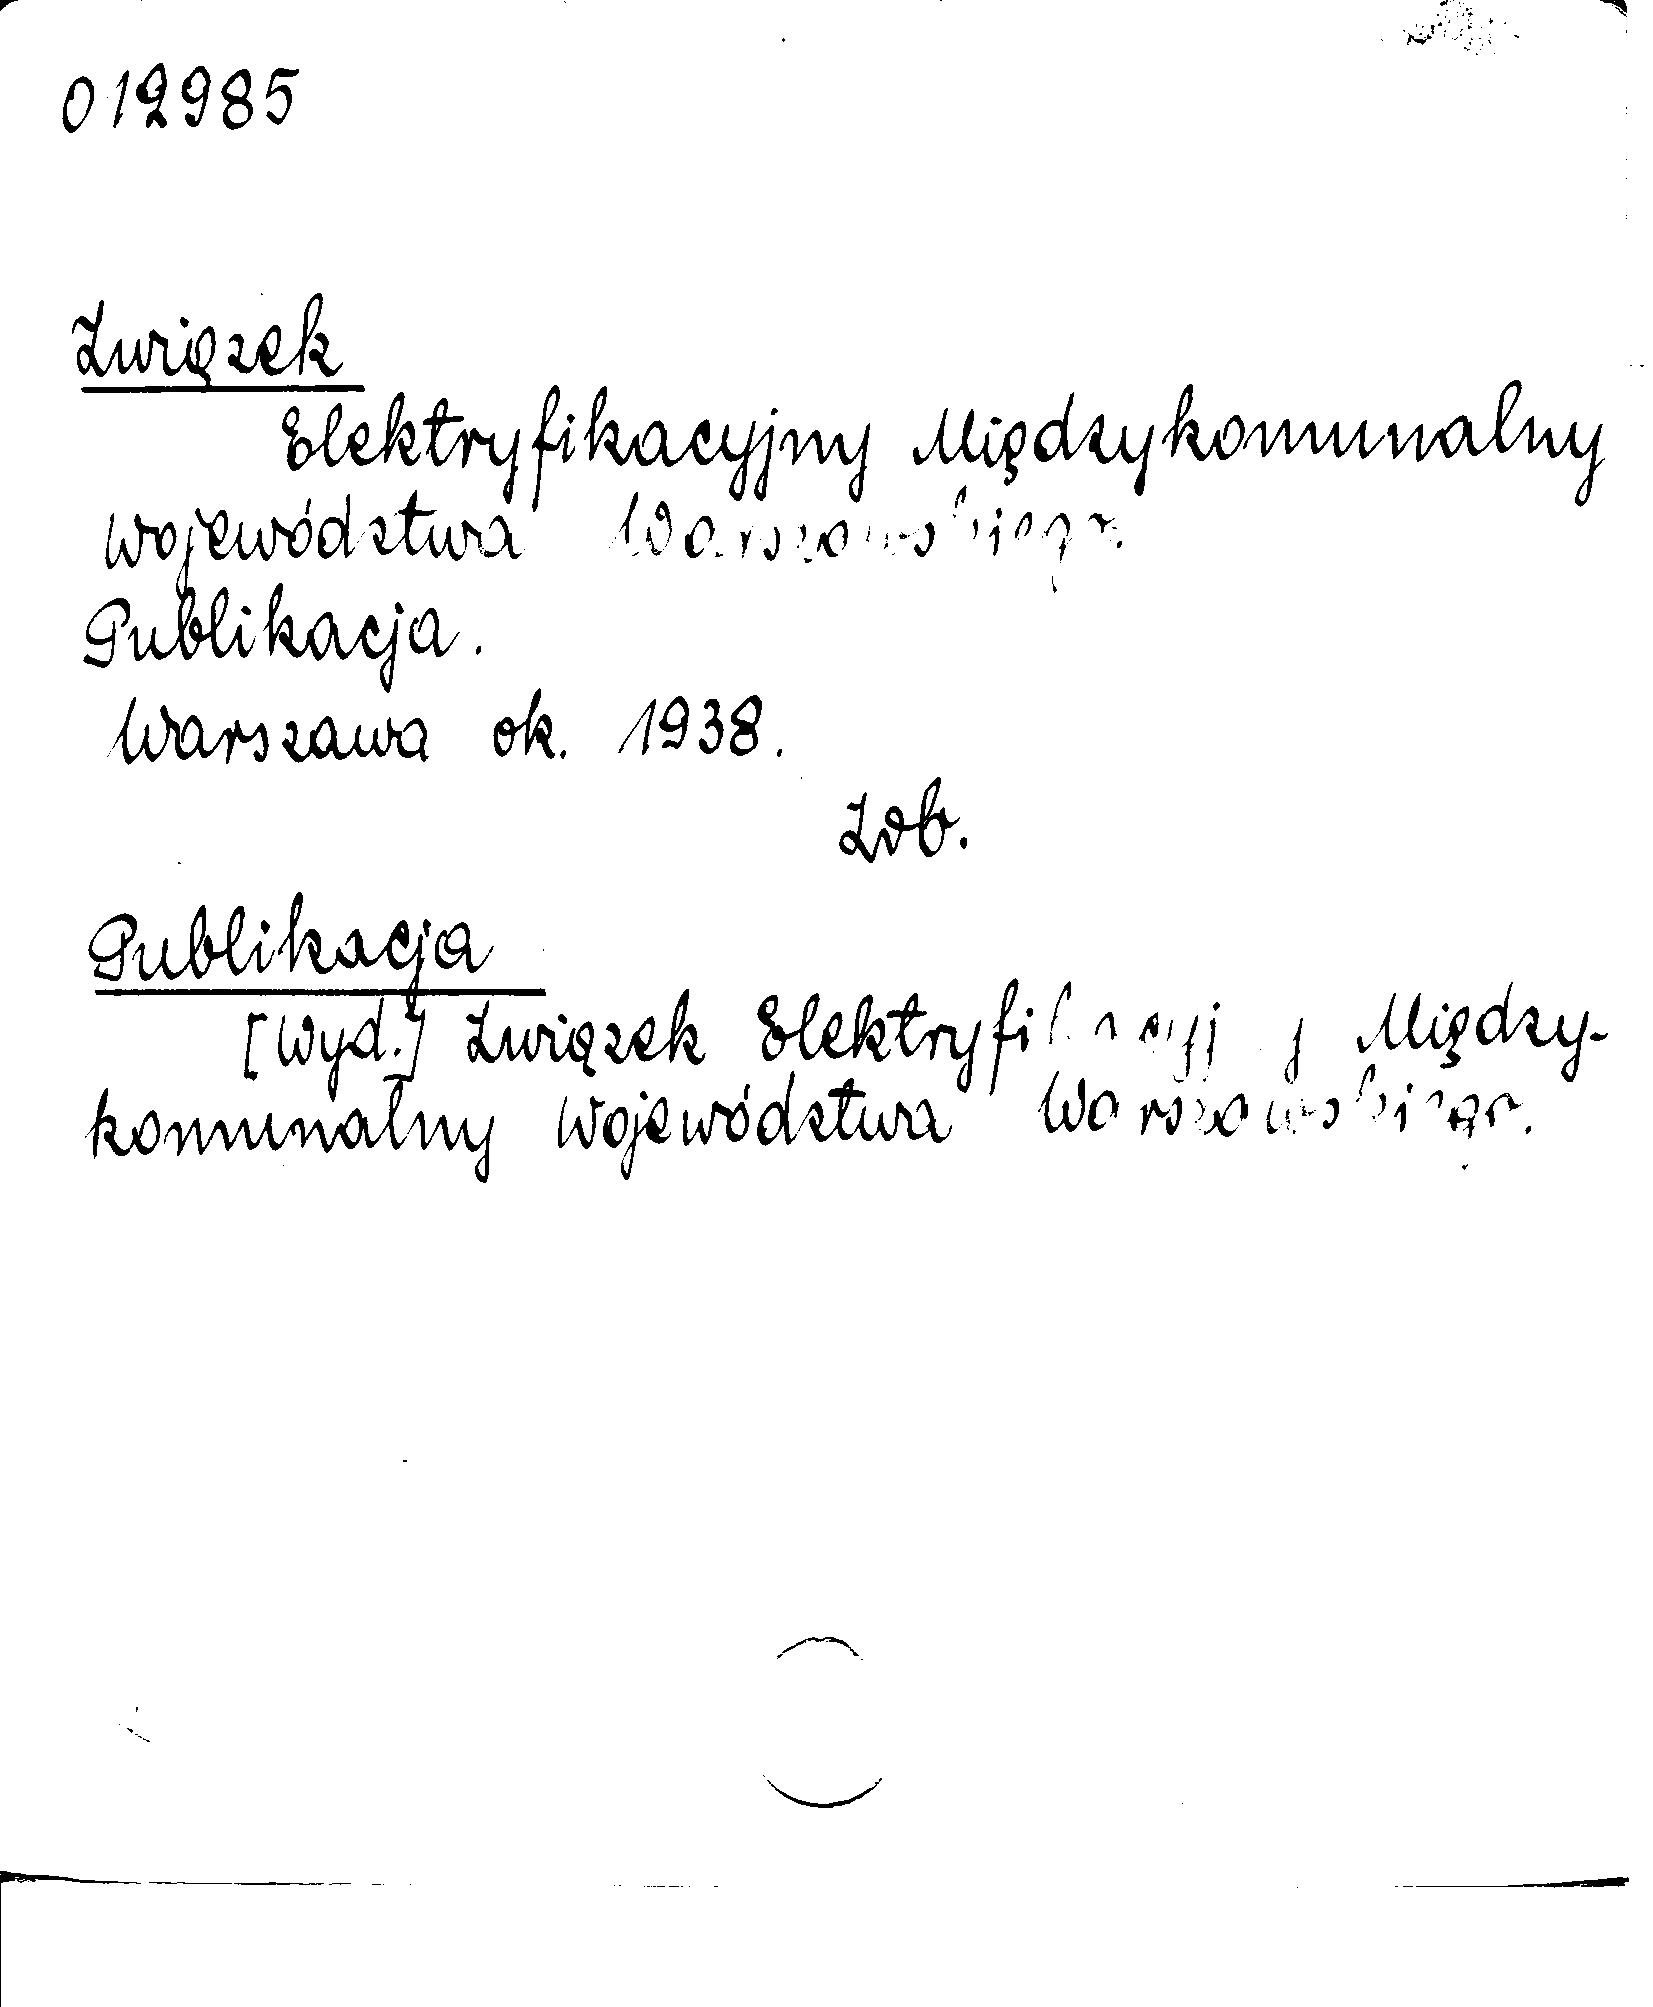 012985
Związek
Elektryfikacyjny Międzykomunalny
Województwa Warszawskiego.
Publikacja.
Warszawa ok. 1938.
Zob.
Publikacja
[Wyd.] Związek Elektryfikacyjny Między-
komunalny Województwa Warszawskiego.